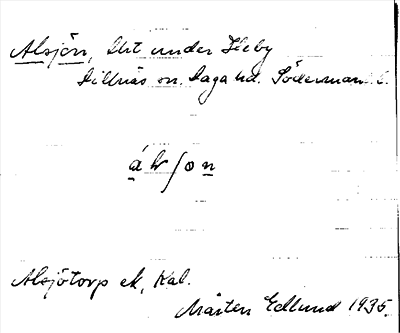 Alsjön, Lht under Heby
Dillnäs sn. Daga hd. Söderman. l.
álsʃon
Alsjötorp ek, Kal.
Mårten Edlund 1935.